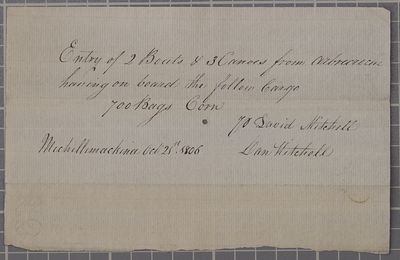 Entry of 2 Boats & 3 Canoes from Arbrecroche
having on board the follow Cargo
700 Bags Corn
David Mitchell
Michilimackina Oct 21st. 1806
Dan Mitchell